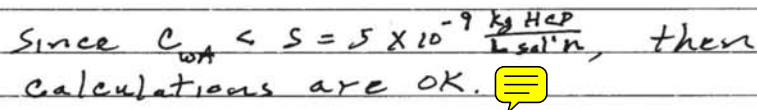 Since C_wA < S = 5 x 10^-9 kg HCP / L sol'n, then
calculations are OK.